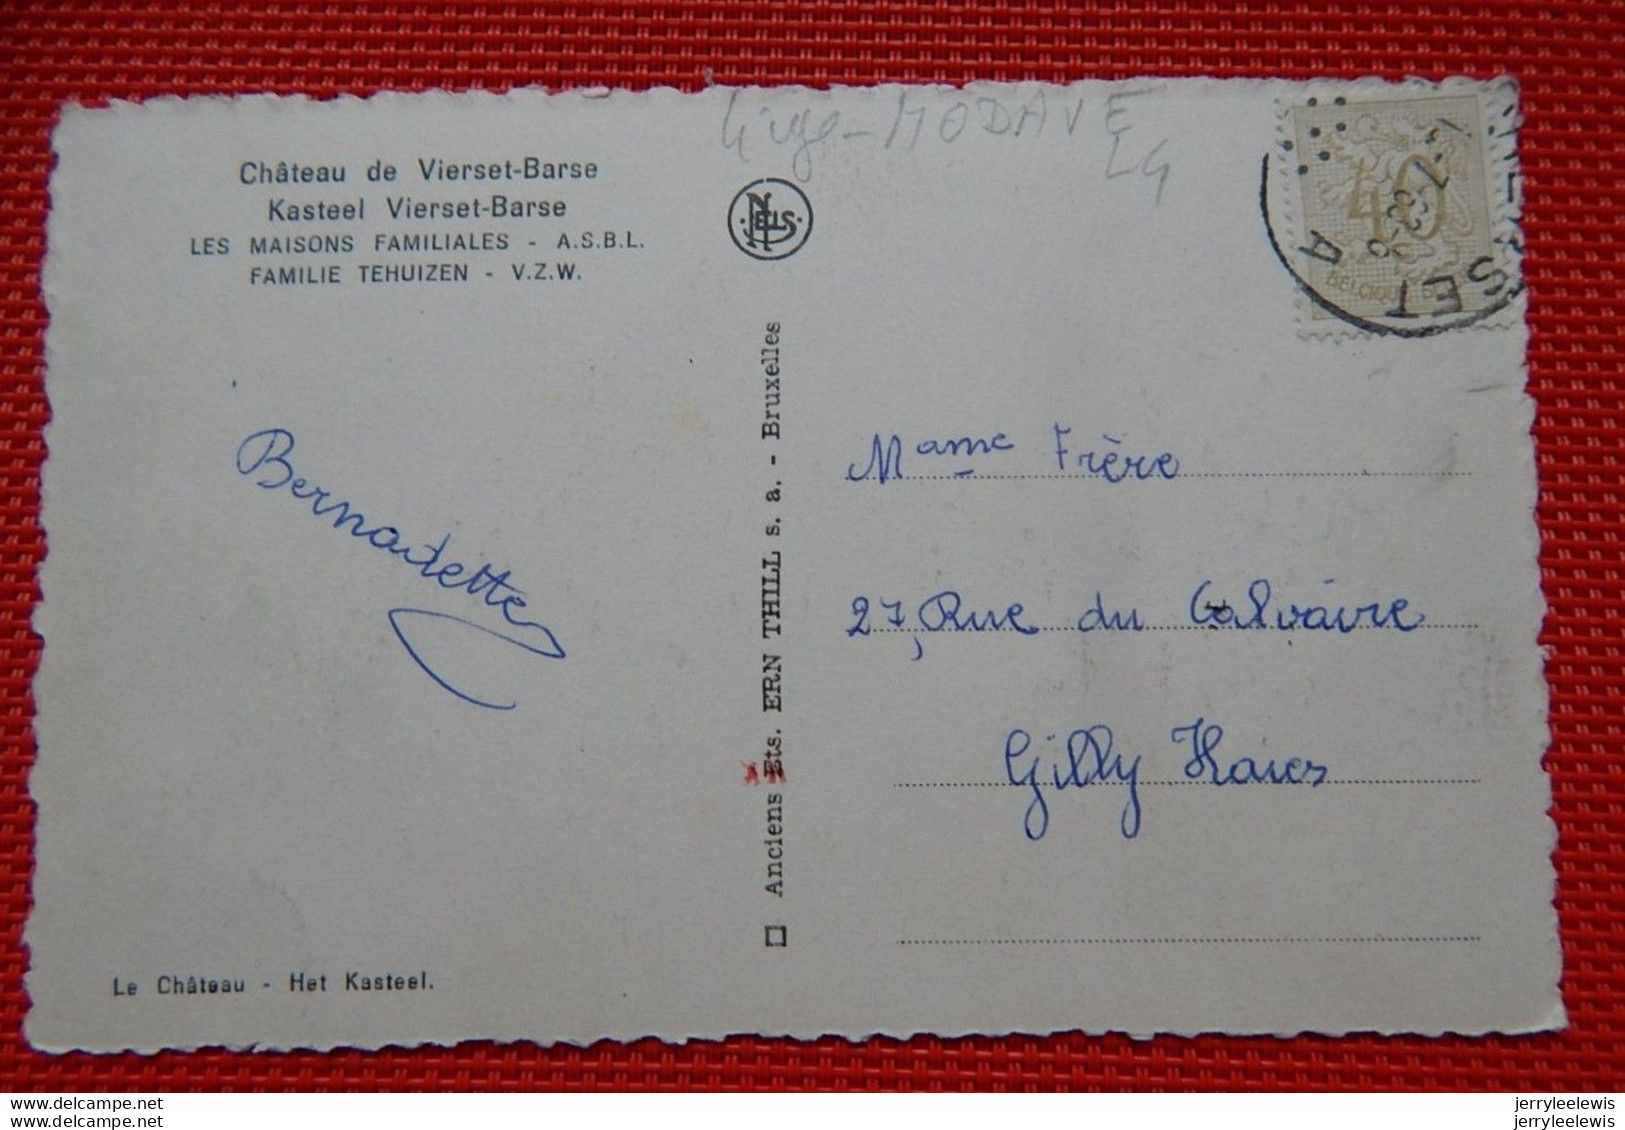 Liège - MODAVE
L4
Château de Vierset-Barse
Kasteel Vierset-Barse
LES MAISONS FAMILIALES - A.S.B.L.
FAMILIE TEHUIZEN - V.Z.W.
NELS
40
BELGIQUE
SET
A
Bernadette
Anciens Ets. ERN THILL s. a. - Bruxelles
Mame Frère
27, Rue du Calvaire
Gilly Haies
Le Château - Het Kasteel.
delcampe.net
delcampe.net
jerryleelewis
jerryleelewis